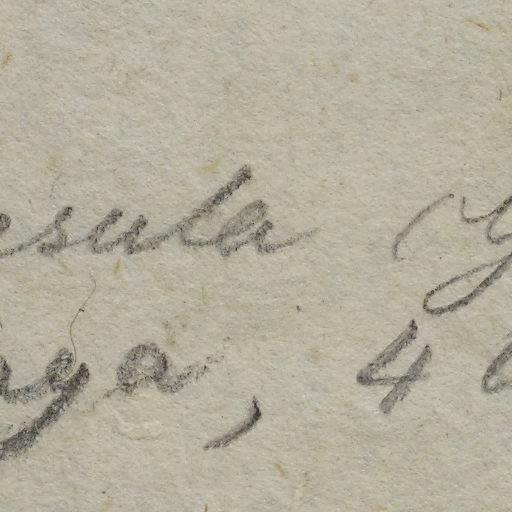 esula (y
aga, 4